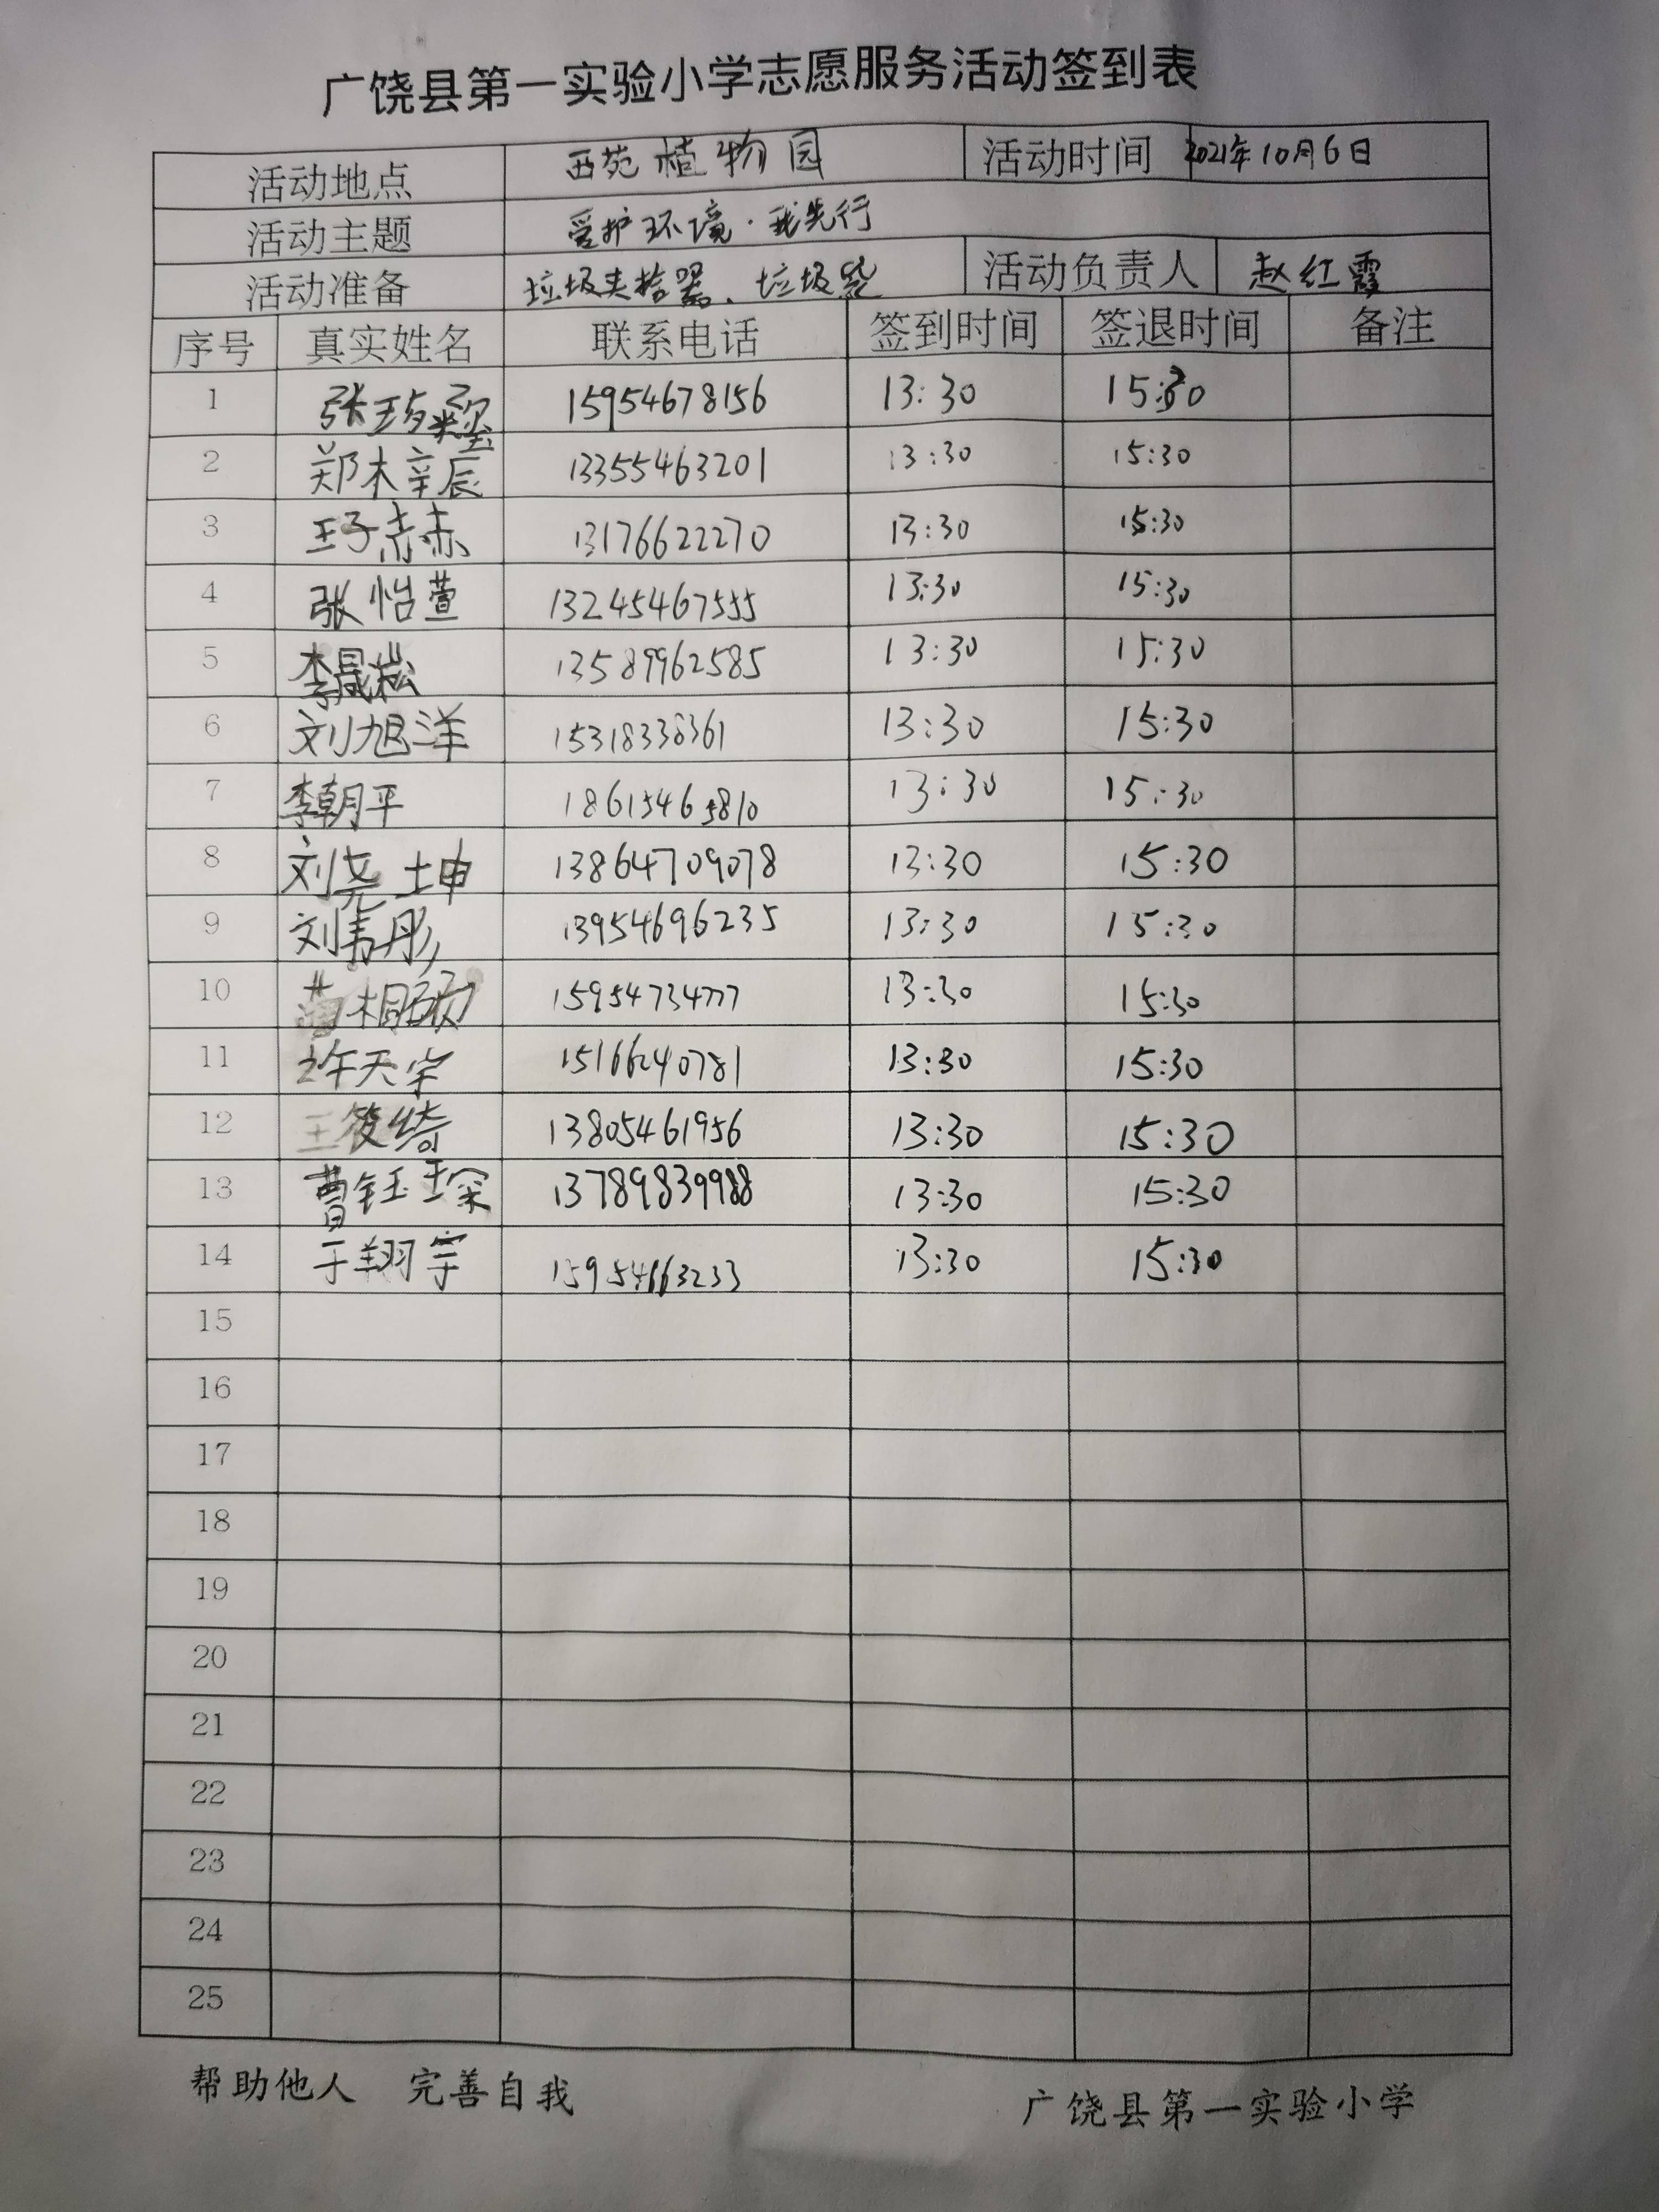 广饶县第一实验小学志愿服务活动签到表
活动地点 西苑植物园 活动时间 2021年10月6日
活动主题 爱护环境·我先行
活动准备 垃圾夹拾器、垃圾袋 活动负责人 赵红霞
序号 真实姓名 联系电话 签到时间 签退时间 备注
1 张 15954678156 13:30 15:30
2 郑木辛辰 13355463201 13:30 15:30
3 王子赫 13176622270 13:30 15:30
4 张怡萱 13245467555 13:30 15:30
5 李晟菘 13589962585 13:30 15:30
6 刘旭洋 15318338361 13:30 15:30
7 李朝平 18615465810 13:30 15:30
8 刘尧坤 13864709078 13:30 15:30
9 刘韦彤 13954696235 13:30 15:30
10 15954734777 13:30 15:30
11 许天宇 15166240781 13:30 15:30
12 王筱绮 13805461956 13:30 15:30
13 曹钰琛 13789839988 13:30 15:30
14 于翔宇 15954663233 13:30 15:30
15
16
17
18
19
20
21
22
23
24
25
帮助他人 完善自我 广饶县第一实验小学